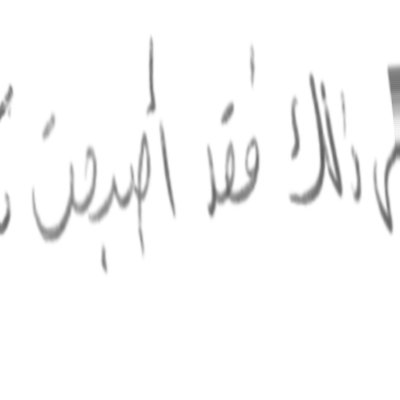 ذلك فقد أصبحت